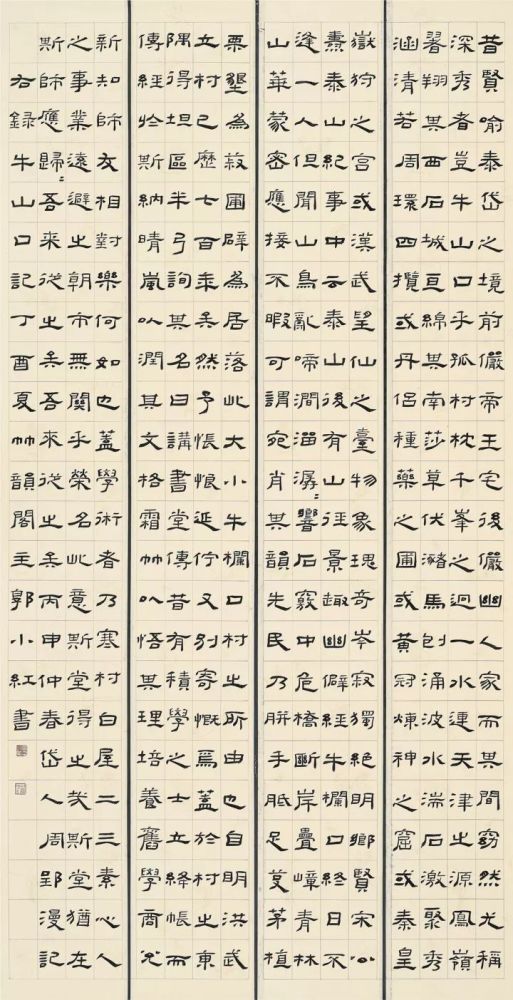 昔賢喻泰岱之境前儼帝王宅後儼幽人家而其間窈然尤稱
深秀者豈牛山口乎孤村枕千峯之迥一水連天津之源鳳嶺
翥翔其西石城亙綿其南莎草伏瀦馬刨涌波水湍石激聚秀
涵清若周環四攬或丹侶種藥之圃或黃冠煉神之窟或秦皇
嶽狩之宮或漢武望仙之臺物象瑰奇岑寂獨絕明鄉賢宋公
燾泰山紀事中云泰山後有山徑景趣幽僻經牛欄口終日不
逢一人但聞山鳥亂啼澗溜潺=響石竅中危橋斷岸疊嶂青林
山華蒙密應接不暇可謂宛肖其韻先民乃胼手胝足芟茅植
栗墾為穀圃辟為居落此大小牛欄口村之所由也自明洪武
立村已歷七百年矣然予悵恨延佇又別寄慨焉蓋於村之東
隅得坦區半弓詢其名曰講書堂傳昔有積學之士立絳帳而
傳經於斯納晴嵐以潤其文格霜竹以悟其理培養舊學商兌
新知師友相對樂何如也蓋學術者乃寒村白屋二三素心人
之事業遠避之朝市無關乎榮名此意斯堂得之哉斯堂猶在
斯師應歸=吾來從之矣吾來從之矣丙申仲春岱人周郢漫記
右錄牛山口記丁酉夏竹韻閣主郭小紅書